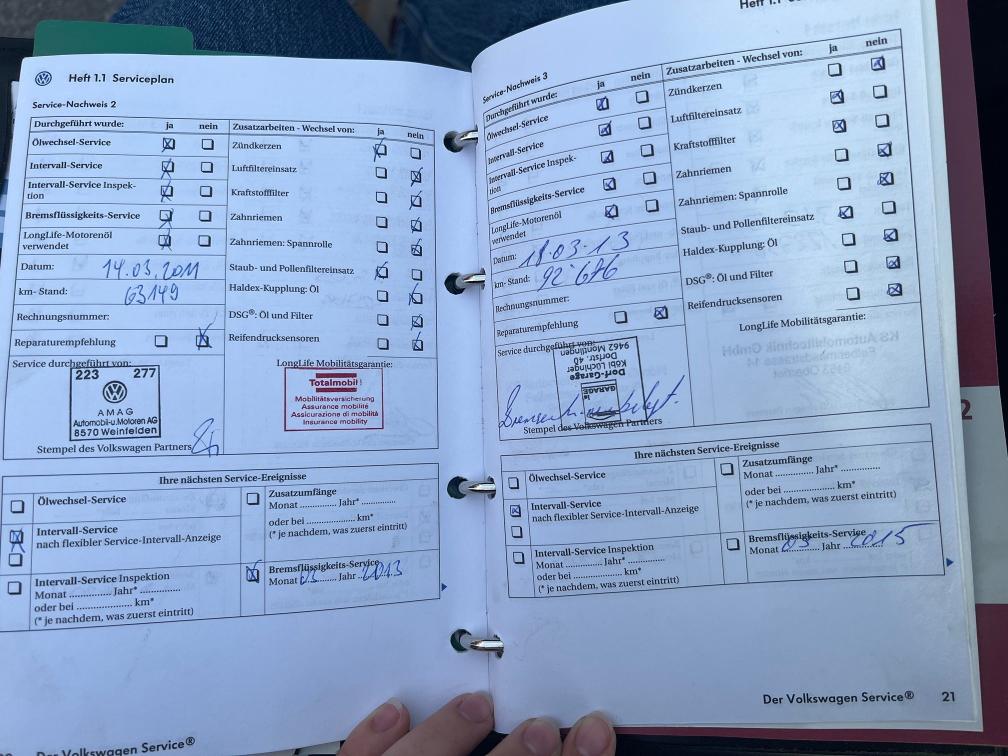 Heft 1.1 Serviceplan
Service-Nachweis 2
Durchgeführt wurde: ja nein
Ölwechsel-Service
Intervall-Service
Intervall-Service Inspek-
tion
Bremsflüssigkeits-Service
LongLife-Motorenöl
verwendet
Datum: 14.03.2011
km- Stand: 63149
Rechnungsnummer:
Reparaturempfehlung
Zusatzarbeiten - Wechsel von: ja nein
Zündkerzen
Luftfiltereinsatz
Kraftstofffilter
Zahnriemen
Zahnriemen: Spannrolle
Staub- und Pollenfiltereinsatz
Haldex-Kupplung: Öl
DSG®: Öl und Filter
Reifendrucksensoren
Service durchgeführt von:
223 277
AMAG
Automobil-u.Motoren AG
8570 Weinfelden
Stempel des Volkswagen Partners
LongLife Mobilitätsgarantie:
Totalmobil!
Mobilitätsversicherung
Assurance mobilité
Assicurazione di mobilità
Insurance mobility
Ihre nächsten Service-Ereignisse
Ölwechsel-Service
Intervall-Service
nach flexibler Service-Intervall-Anzeige
Intervall-Service Inspektion
Monat .......... Jahr* ..............
oder bei ................... km*
(* je nachdem, was zuerst eintritt)
Zusatzumfänge
Monat .......... Jahr* ..............
oder bei ................... km*
(* je nachdem, was zuerst eintritt)
Bremsflüssigkeits-Service
Monat 03 Jahr 2013
Der Volkswagen Service®
Heft 1.1
Service-Nachweis 3
Durchgeführt wurde: ja nein
Ölwechsel-Service
Intervall-Service
Intervall-Service Inspek-
tion
Bremsflüssigkeits-Service
LongLife-Motorenöl
verwendet
Datum: 18.03-13
km- Stand: 92'686
Rechnungsnummer:
Reparaturempfehlung
Zusatzarbeiten - Wechsel von: ja nein
Zündkerzen
Luftfiltereinsatz
Kraftstofffilter
Zahnriemen
Zahnriemen: Spannrolle
Staub- und Pollenfiltereinsatz
Haldex-Kupplung: Öl
DSG®: Öl und Filter
Reifendrucksensoren
Service durchgeführt von:
GARAGE
Dorf-Garage
Köbi Lüchinger
Dorfstr. 40
9462 Montlingen
Stempel des Volkswagen Partners
LongLife Mobilitätsgarantie:
Ihre nächsten Service-Ereignisse
Ölwechsel-Service
Intervall-Service
nach flexibler Service-Intervall-Anzeige
Intervall-Service Inspektion
Monat .......... Jahr* ..............
oder bei ................... km*
(* je nachdem, was zuerst eintritt)
Zusatzumfänge
Monat .......... Jahr* ..............
oder bei ................... km*
(* je nachdem, was zuerst eintritt)
Bremsflüssigkeits-Service
Monat 03 Jahr 2015
Der Volkswagen Service® 21